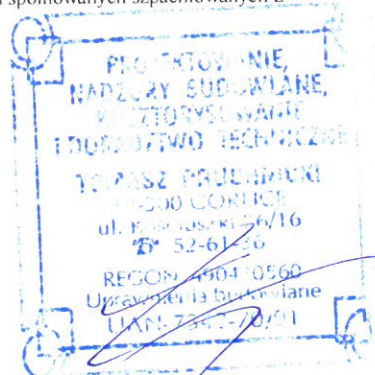 spoinowanych szpachlowanych z
PROJEKTOWANIE,
NADZORY BUDOWLANE,
KOSZTORYSOWANIE
I DORADZTWO TECHNICZNE
TOMASZ PRUCHNICKI
GORLICE
ul. Kościuszki 36/16
☎ 52-61-36
REGON
Uprawnienia budowlane